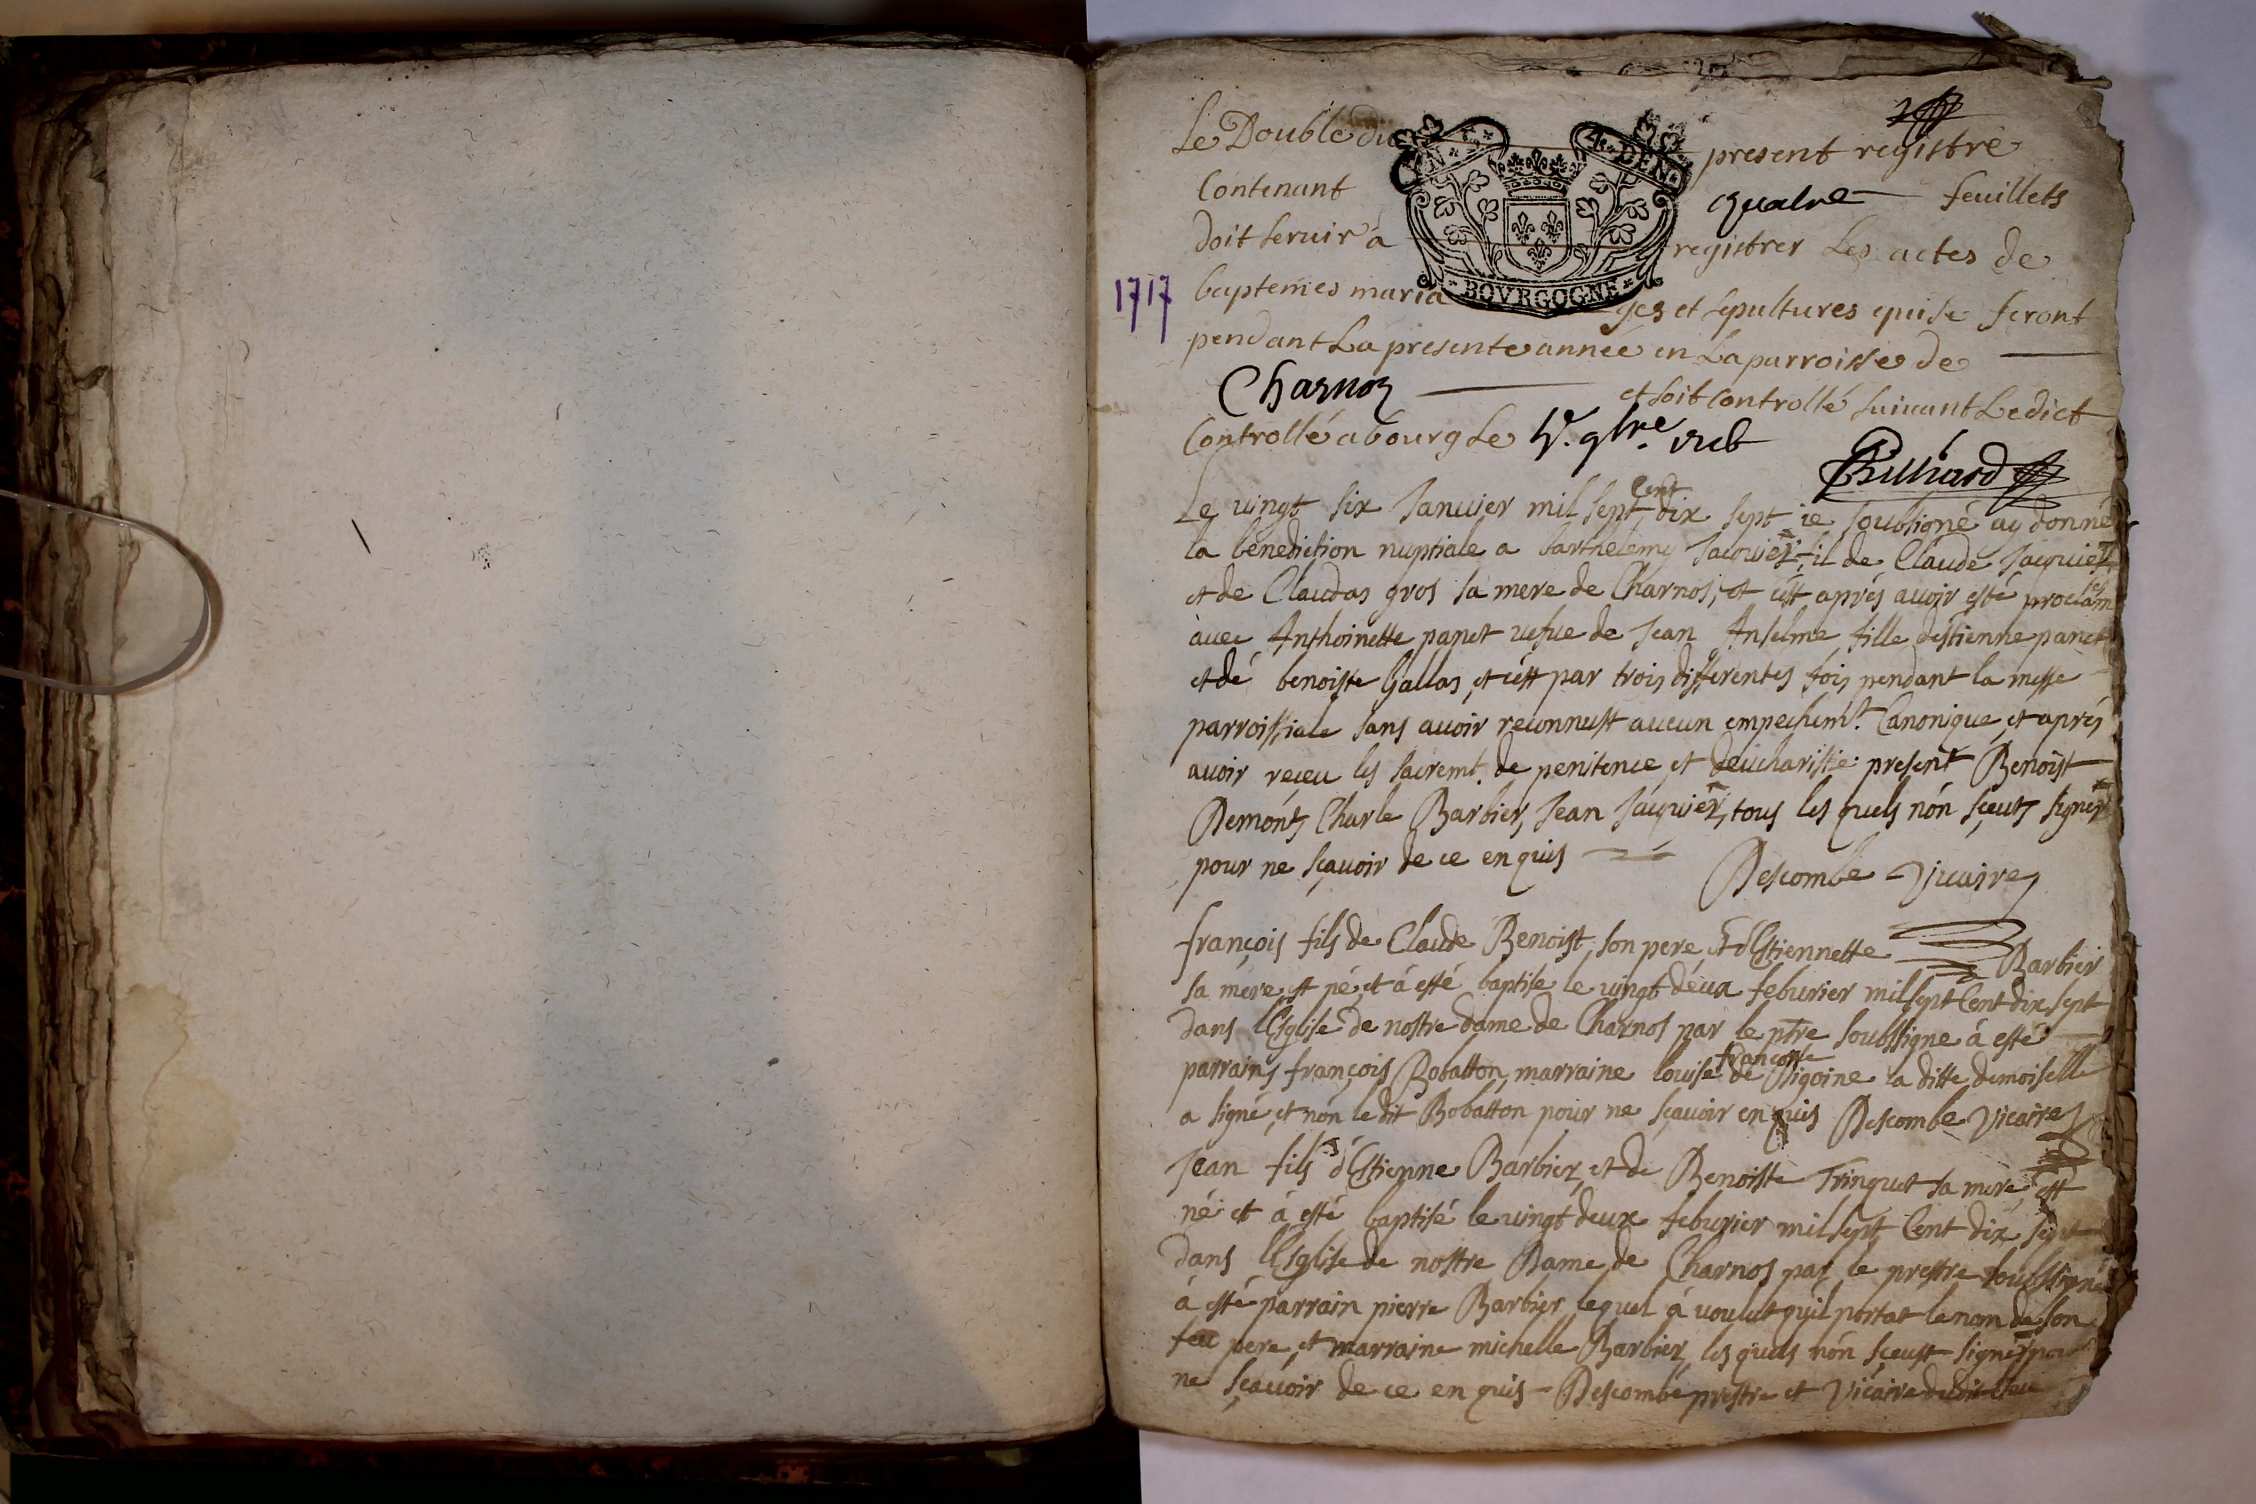 Le Double du present registre
Contenant quatre feuillets
doit servir a registrer Les actes de
1717
baptemes maria ges et sepultures qui se feront
pendant La presente année en La parroisse de
Charnoz et soit Controllé suivant Ledict
Controllé a bourg Le
4. DEN.
BOVRGOGNE
Le vingt six Januier mil sept Cent dix sept ie soubsigné ay donné
la benediction nuptiale a barthelemy Jacquier, fil de Claude Jacquier
et de Claudas gros sa mere de Charnos, et c'est aprés auoir esté proclam
auec Anthoinette panet vefue de Jean Anselme fille destienne panet
et dé benoiste Gallas, et c'est par trois differentes fois pendant la messe
parroissiale sans auoir reconnust aucun empechemt. Canonique, et aprés
auoir reçeu les sacremt. de penitence et deucharistie. present Benoist
Demont, Charle Barbier, Jean Jacquier, tous les quels nón sçeut signer
pour ne sçauoir de ce enquis Descombe Vicaire
françois fils de Claude Benoist son pere, et d'Estiennette Barbier
sa mere, est né, et á esté baptise le vingt déux feburier mil sept Cent dix sept
dans l'Esglise de nostre dame de Charnos par le ptre soubssigne á esté
parrains françois Bobatton, marraine louise françoise de Migoine la ditte demoiselle
a signé, et nón le dit Bobatton pour ne sçauoir enquis Descombe Vicaire
Jean fils d'Estienne Barbier, et de Benoiste Trinquet sa mere, est
né et á esté baptisé le vingt deux feburier mil sept Cent dix sept
dans l'Esglise de nostre Dame de Charnos par le prestre soubssigné
á esté parrain pierre Barbier lequel á voulut qu'il portat le nom de son
feu pere, et marraine michelle Barbier, les quels nón sçeust signer pour
ne sçauoir de ce enquis - Descombe prestre et Vicaire